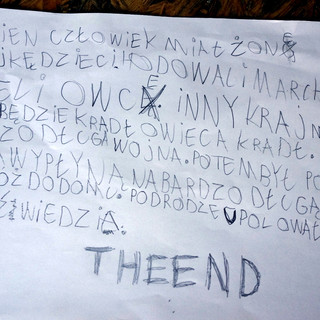 IEN CZŁOWIEK MIAŁ ŻONĘ
KĘDZIECI. HODOWALI MARCH
ELI OWCE. INNY KRAJ N
BĘDZIE KRADŁ OWIECA KRADŁ.
ZO DŁUGA WOJNA. POTEM BYŁ PO
WYPŁYNĄ NA BARDZO DŁUGĄ
ÓŻ DO DONKU. PODRODZE UPOLOWAŁ
WIEDZIA.
THE END